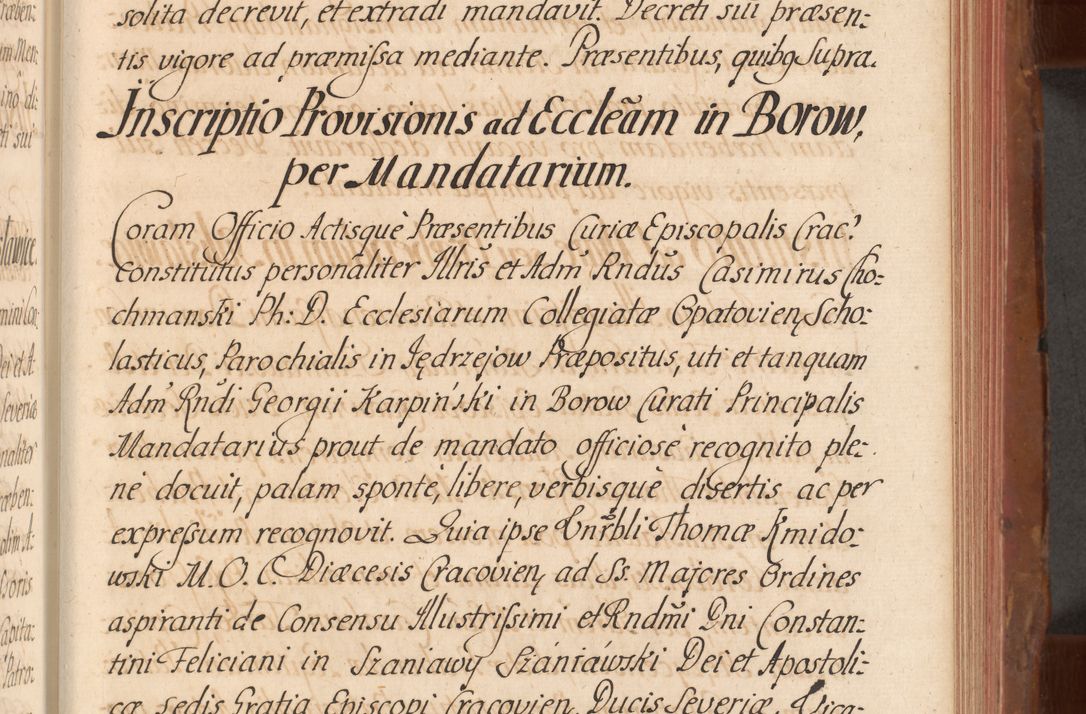 solita decrevit, et extradi mandavit. Decreti sui præsen:
tis vigore ad præmissa mediante. Præsentibus, quibg Supra.
Inscriptio Provisionis ad Eccleãm in Borow,
per Mandatarium.
Coram Officio Actisquè Præsentibus Curiæ Episcopalis Crac?
Constitutus personaliter Illris et Adm Rndus Casimirus Cho:
chmanski Ph: D. Ecclesiarum Collegiatæ Opatovien, Scho:
lasticus, Parochialis in Jędrzejow Præpositus, uti et tanquam
Adm Rndi Georgii Karpiński in Borow Curati Principalis
Mandatarius prout de mandato officiosè recognito ple:
nè docuit, palam spontè, libere, verbisquè disertis ac per
expressum recognovit. Quia ipse Vnrbli Thomæ Kmido:
wski M. O. C. Diæcesis Cracovien, ad Ss. Majores Ordines
aspiranti de Consensu Illustrissimi et Rndmi Dni Constan:
tini Feliciani in Szaniawy Szániáwski Dei et Apostoli:
cæ sedis Gratia Episcopi Cracovien, Ducis Severiæ, Vica: